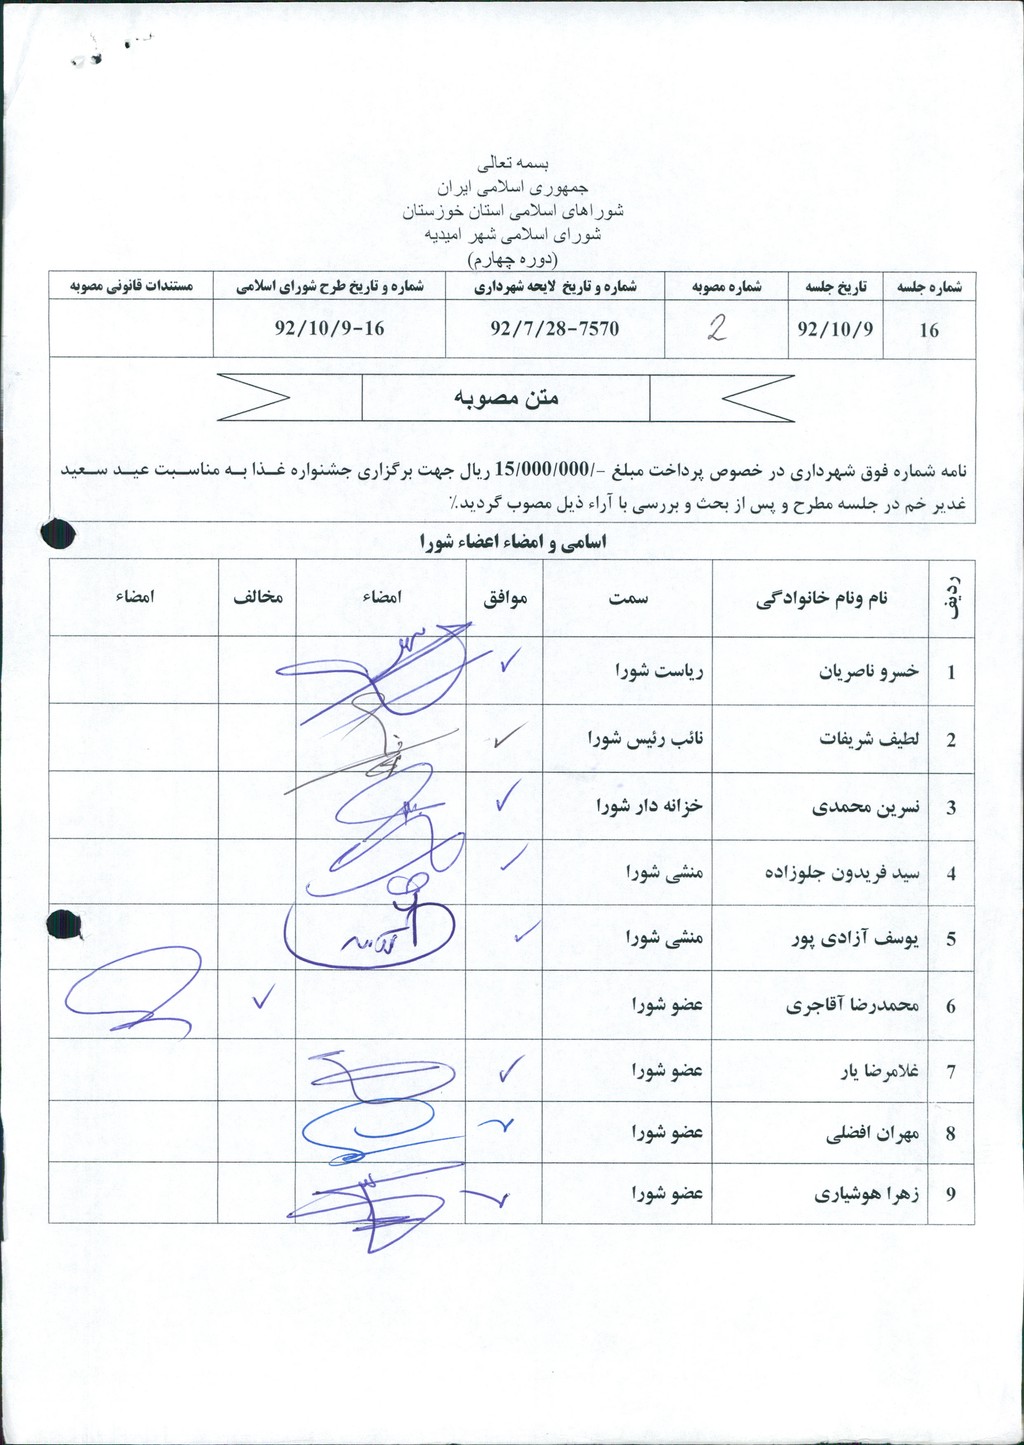 بسمه تعالی
جمهوری اسلامی ایران
شوراهای اسلامی استان خوزستان
شورای اسلامی شهر امیدیه
(دوره چهارم)
شماره جلسه تاریخ جلسه شماره مصوبه شماره و تاریخ لایحه شهرداری شماره و تاریخ طرح شورای اسلامی مستندات قانونی مصوبه
16 92/10/9 2 92/7/28-7570 92/10/9-16
متن مصوبه
نامه شماره فوق شهرداری در خصوص پرداخت مبلغ -/15/000/000 ریال جهت برگزاری جشنواره غذا به مناسبت عید سعید
غدیر خم در جلسه مطرح و پس از بحث و بررسی با آراء ذیل مصوب گردید.٪
اسامی و امضاء اعضاء شورا
ردیف نام ونام خانوادگی سمت موافق امضاء مخالف امضاء
1 خسرو ناصریان ریاست شورا ✓
2 لطیف شریفات نائب رئیس شورا ✓
3 نسرین محمدی خزانه دار شورا ✓
4 سید فریدون جلوزاده منشی شورا ✓
5 یوسف آزادی پور منشی شورا ✓
6 محمدرضا آقاجری عضو شورا ✓
7 غلامرضا یار عضو شورا ✓
8 مهران افضلی عضو شورا ✓
9 زهرا هوشیاری عضو شورا ✓